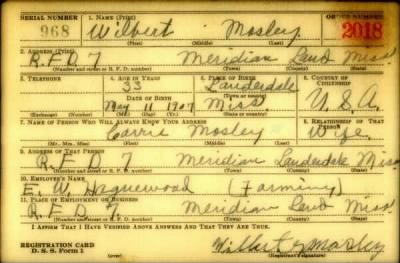 SERIAL NUMBER 1. NAME (Print) ORDER NUMBER
968 Wilbert Mosley 2018
(First) (Middle) (Last)
2. ADDRESS (Print)
R.F.D 7 Meridian Laud Miss
(Number and street or R. F. D. number) (Town) (County) (State)
3. TELEPHONE 4. AGE IN YEARS 5. PLACE OF BIRTH 6. COUNTRY OF CITIZENSHIP
33 Lauderdale
DATE OF BIRTH
May 11 1907 Miss. U.S.A.
(Mo.) (Day) (Yr.)
7. NAME OF PERSON WHO WILL ALWAYS KNOW YOUR ADDRESS 8. RELATIONSHIP OF THAT PERSON
Carrie Mosley Wife
(Mr., Mrs., Miss) (First) (Middle) (Last)
9. ADDRESS OF THAT PERSON
R.F.D 7 Meridian Lauderdale Miss
(Number and street or R. F. D. number) (Town) (County) (State)
10. EMPLOYER'S NAME
E. W. (Farming)
11. PLACE OF EMPLOYMENT OR BUSINESS
R.F.D 7 Meridian Laud Miss
(Number and street or R. F. D. number) (Town) (County) (State)
I AFFIRM THAT I HAVE VERIFIED ABOVE ANSWERS AND THAT THEY ARE TRUE.
REGISTRATION CARD
D. S. S. Form 1 Wilbert Mosley
(Registrant's signature)